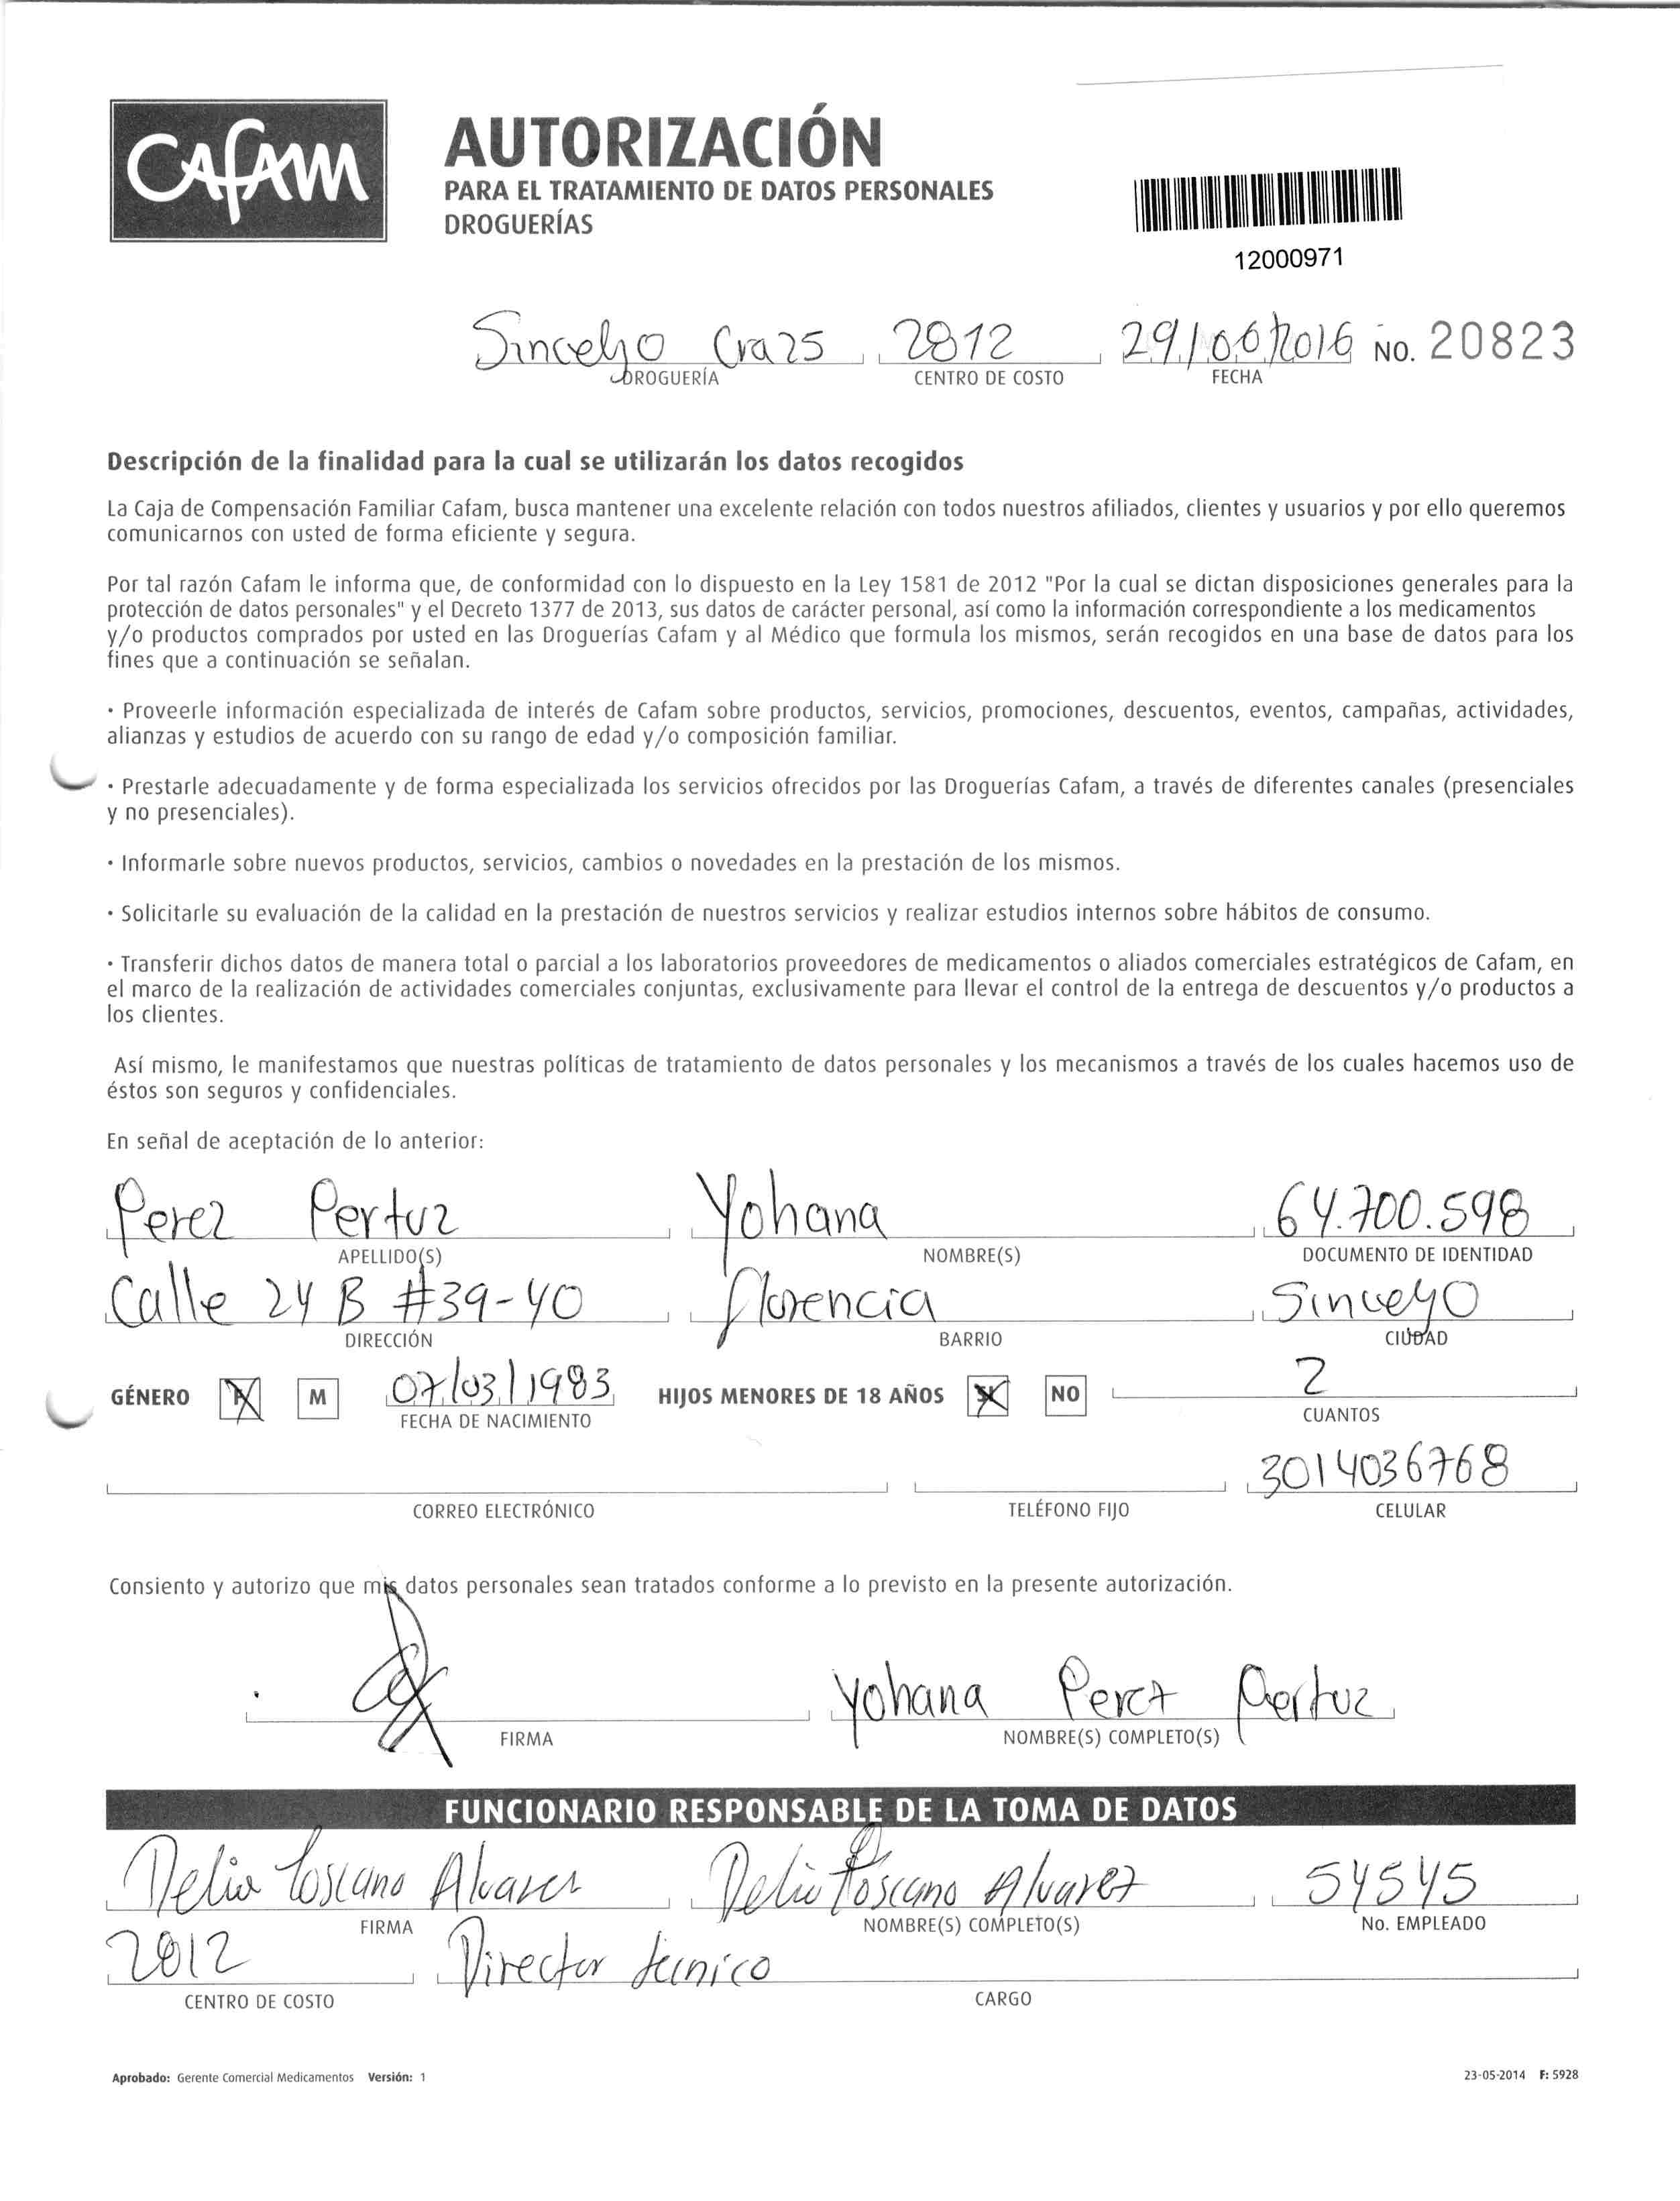 Cafam
AUTORIZACIÓN
PARA EL TRATAMIENTO DE DATOS PERSONALES
DROGUERÍAS
12000971
Sincelejo Cra 25 2812 29/06/2016 NO. 20823
DROGUERÍA CENTRO DE COSTO FECHA
Descripción de la finalidad para la cual se utilizarán los datos recogidos
La Caja de Compensación Familiar Cafam, busca mantener una excelente relación con todos nuestros afiliados, clientes y usuarios y por ello queremos
comunicarnos con usted de forma eficiente y segura.
Por tal razón Cafam le informa que, de conformidad con lo dispuesto en la Ley 1581 de 2012 "Por la cual se dictan disposiciones generales para la
protección de datos personales" y el Decreto 1377 de 2013, sus datos de carácter personal, así como la información correspondiente a los medicamentos
y/o productos comprados por usted en las Droguerías Cafam y al Médico que formula los mismos, serán recogidos en una base de datos para los
fines que a continuación se señalan.
· Proveerle información especializada de interés de Cafam sobre productos, servicios, promociones, descuentos, eventos, campañas, actividades,
alianzas y estudios de acuerdo con su rango de edad y/o composición familiar.
· Prestarle adecuadamente y de forma especializada los servicios ofrecidos por las Droguerías Cafam, a través de diferentes canales (presenciales
y no presenciales).
· Informarle sobre nuevos productos, servicios, cambios o novedades en la prestación de los mismos.
· Solicitarle su evaluación de la calidad en la prestación de nuestros servicios y realizar estudios internos sobre hábitos de consumo.
· Transferir dichos datos de manera total o parcial a los laboratorios proveedores de medicamentos o aliados comerciales estratégicos de Cafam, en
el marco de la realización de actividades comerciales conjuntas, exclusivamente para llevar el control de la entrega de descuentos y/o productos a
los clientes.
Así mismo, le manifestamos que nuestras políticas de tratamiento de datos personales y los mecanismos a través de los cuales hacemos uso de
éstos son seguros y confidenciales.
En señal de aceptación de lo anterior:
Perez Pertuz Yohana 64.700.598
APELLIDO(S) NOMBRE(S) DOCUMENTO DE IDENTIDAD
Calle 24 B #39-40 Florencia Sincelejo
DIRECCIÓN BARRIO CIUDAD
GÉNERO F M 07/03/1983 HIJOS MENORES DE 18 AÑOS SI NO 2
FECHA DE NACIMIENTO CUANTOS
3014036768
CORREO ELECTRÓNICO TELÉFONO FIJO CELULAR
Consiento y autorizo que mis datos personales sean tratados conforme a lo previsto en la presente autorización.
Yohana Perez Pertuz
FIRMA NOMBRE(S) COMPLETO(S)
FUNCIONARIO RESPONSABLE DE LA TOMA DE DATOS
Delia Toscano Alvarez Delia Toscano Alvarez 54545
FIRMA NOMBRE(S) COMPLETO(S) No. EMPLEADO
2812 Director tecnico
CENTRO DE COSTO CARGO
Aprobado: Gerente Comercial Medicamentos Versión: 1 23-05-2014 F: 5928